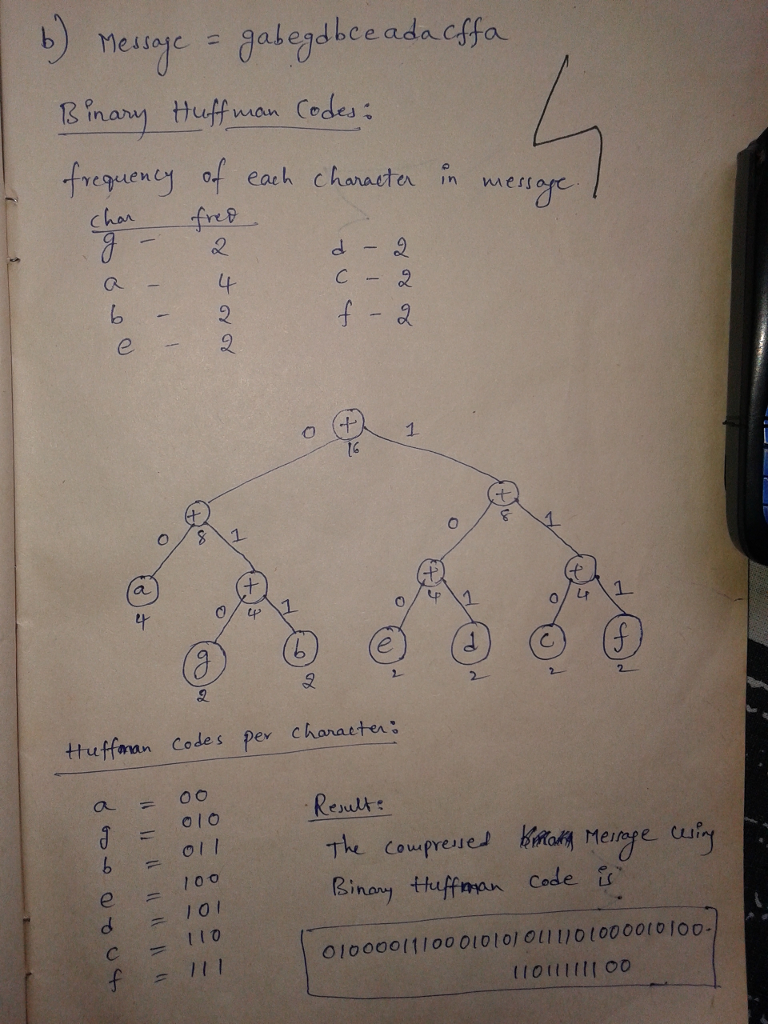 b) Message = gabegdbceadacffa
Binary Huffman Codes:
frequency of each character in message.
char freq
g - 2 d - 2
a - 4 c - 2
b - 2 f - 2
e - 2
0 + 1
16
+ 8 0 1
+ 8 0 1
a 4
+ 4 0 1
+ 4 0 1
+ 4 0 1
g 2 b 2 e 2 d 2 c 2 f 2
Huffman Codes per character:
a = 00
g = 010
b = 011
e = 100
d = 101
c = 110
f = 111
Result:
The compressed Message using
Binary Huffman code is
010000111000101010111101000010100-
11011111100